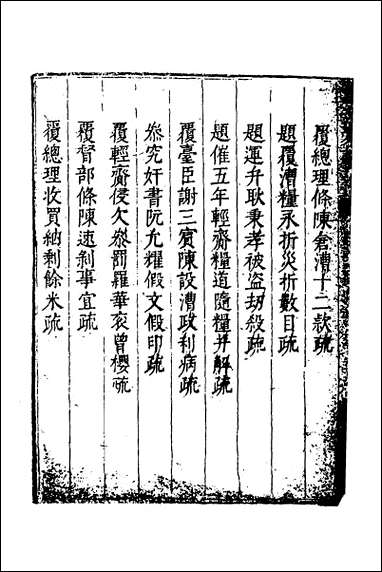 覆總理條陳君漕十二款疏
題覆漕糧永折災折數目疏
題運弁耿秉孝被盜劫殺疏
題催五年輕齎糧道隨糧并解疏
覆臺臣謝三賓陳設漕政利病疏
叅究奸書阮允耀假文假印疏
覆輕齎侵欠叅罰羅華衮曾櫻疏
覆督部條陳速剝事宜疏
覆總理收買納剩餘米疏